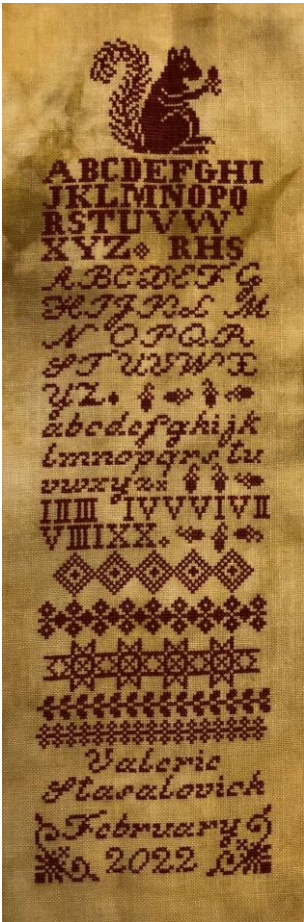 ABCDEFGHI
JKLMNOPQ
RSTUVW
XYZ RHS
ABCDEFG
HIJKLM
NOPQR
STUVWX
YZ.
abcdefghijk
lmnopqrstu
vwxyz
I II III IV V VI VII
VIII IX X.
Valerie
Stasalovich
February
2022